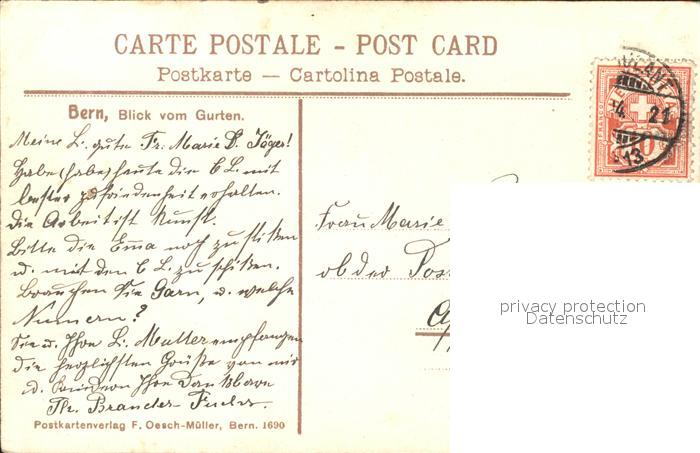 CARTE POSTALE - POST CARD
Postkarte — Cartolina Postale.
Bern, Blick vom Gurten.
Meine L. gute Fr. Marie D. Jäger!
Habe (habe) heute die 6 L. mit
bester zufriedenheit erhalten.
die Arbeit ist Kunst.
Bitte die Emma noch zu
u. mit den 6 L. zu schiken.
Brauchen Sie Garn, u. welche
Numern?
Sie u. Ihre L. Mutter empfangen
die herzlichsten Grüße von mir
u. Ihre Dankbare
Th. Brander- Fuchs.
Postkartenverlag F. Oesch-Müller, Bern. 1690
Frau Marie
ob der Pos
privacy protection
Datenschutz
FRANCO
10
21
13